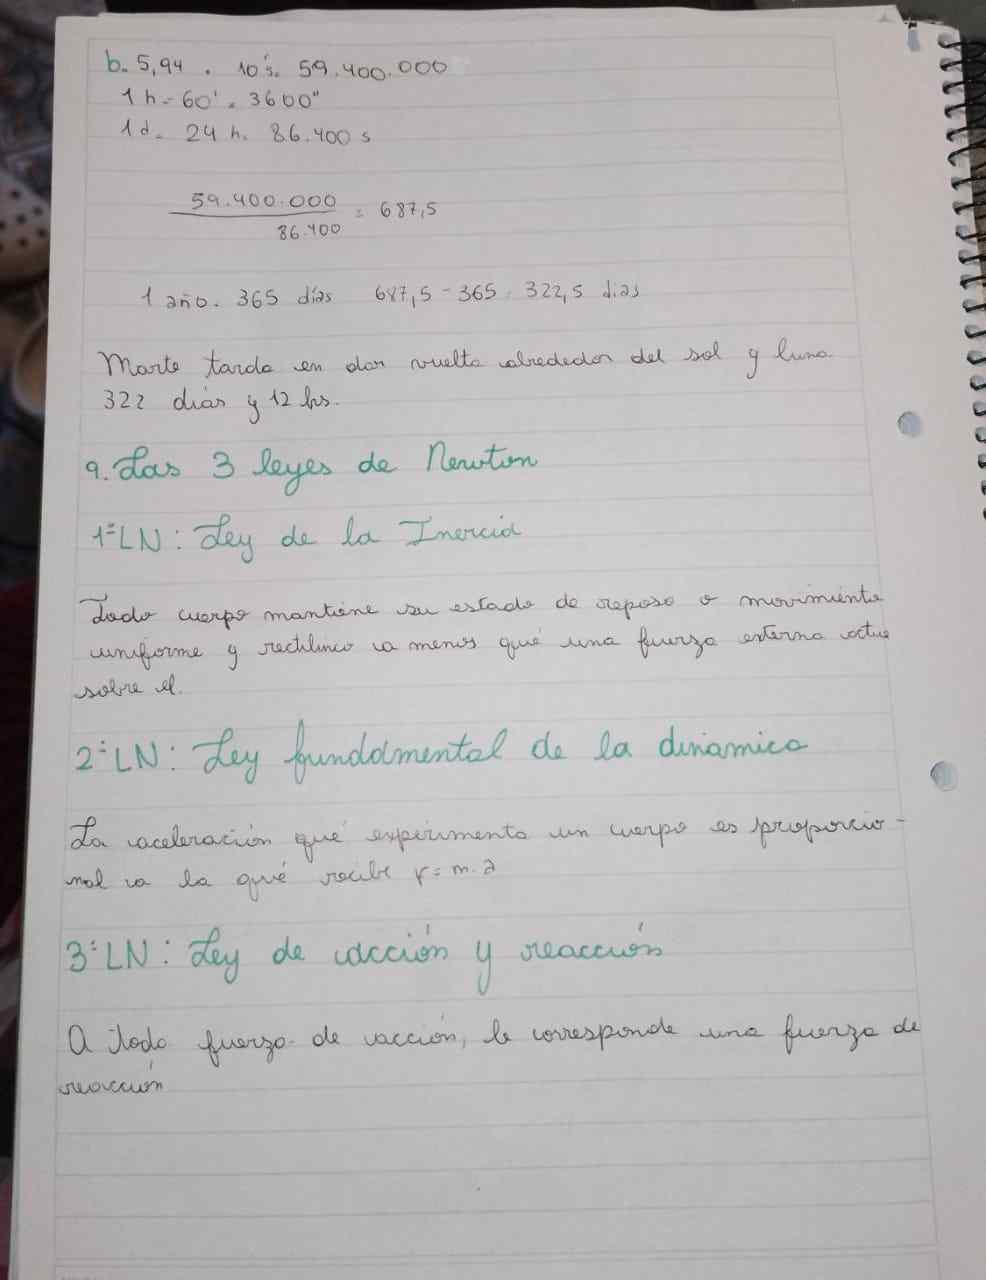 b. 5,94 . 10's. 59.400.000
1 h = 60' = 3600"
1 d = 24 h. 86.400 s
59.400.000
86.400
= 687,5
1 año. 365 días 687,5 - 365 = 322,5 dias
Marte tarda en dar vuelta alrededor del sol y luna
322 dias y 12 hs.
9. Las 3 leyes de Newton
1ºLN: Ley de la Inercia
Todo cuerpo mantiene su estado de reposo o movimiento
uniforme y rectilineo a menos qué una fuerza externa actue
sobre el.
2ºLN: Ley fundamental de la dinamica
La aceleración qué experimenta un cuerpo es proporcio-
nal a la qué recibe F= m.a
3ºLN: Ley de acción y reacción
A todo fuerza de acción, le corresponde una fuerza de
reacción